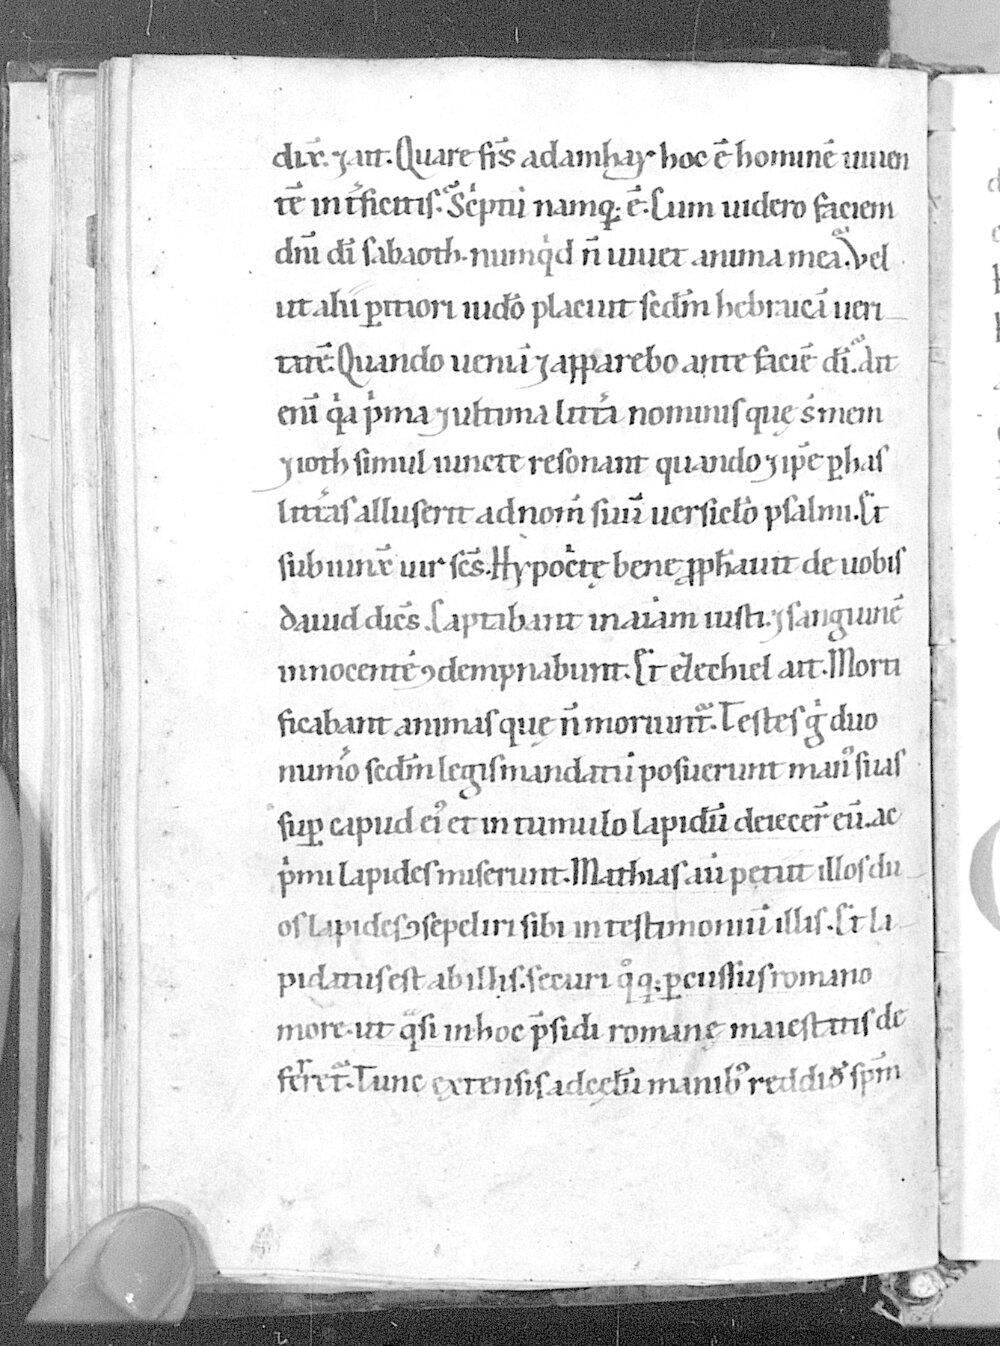 dix̄. ⁊ ait. Quare fr̄s adamhay hoc ē hominē uiuen
tē int̄ficitis. Sc̄ptū namq; ē. Cum uidero faciem
dn̄i dī sabaoth. numqͥd n̄ uiuet anima mea. Vel
ut alii ꝑitiori iudō placuit sedm̄ hebraicā ueri
tatē. Quando ueniā ⁊ apparebo ante faciē dī. Aīt
enī qͥa pͥma ⁊ ultima litt̄a nominis quę s̄ mem
⁊ ioth simul iuncte resonant quando ⁊ ip̄e ꝑ has
litt̄as alluserit ad nom̄ suū uersiclō psalmi. Et
subiunx̄ uir sc̄s. Hypoc̄tę bene ꝓph̄auit de uobis
dauid dicēs. Captabant in aīam iusti. ⁊ sanguinē
innocentē ꝯdempnabunt. Et ezechiel ait. Morti
ficabant animas quę n̄ moriunt̄. Testes gͦ duo
numō sedm̄ legis mandatū posuerunt manꝰ suas
suꝑ capud eiꝰ et in tumulo lapidū deiecer̄ eū. ac
pͥmi lapides miserunt. Mathias aū petiit illos du
os lapides ꝯsepeliri sibi in testimoniū illis. Et la
pidatus est ab illis. securi qͦq; ꝑcussus romano
more. ut qͣsi in hoc p̄sidi romanę maiestatis de
ferret̄. Tunc extensis ad cęlū manibꝰ reddid̄ sp̄m